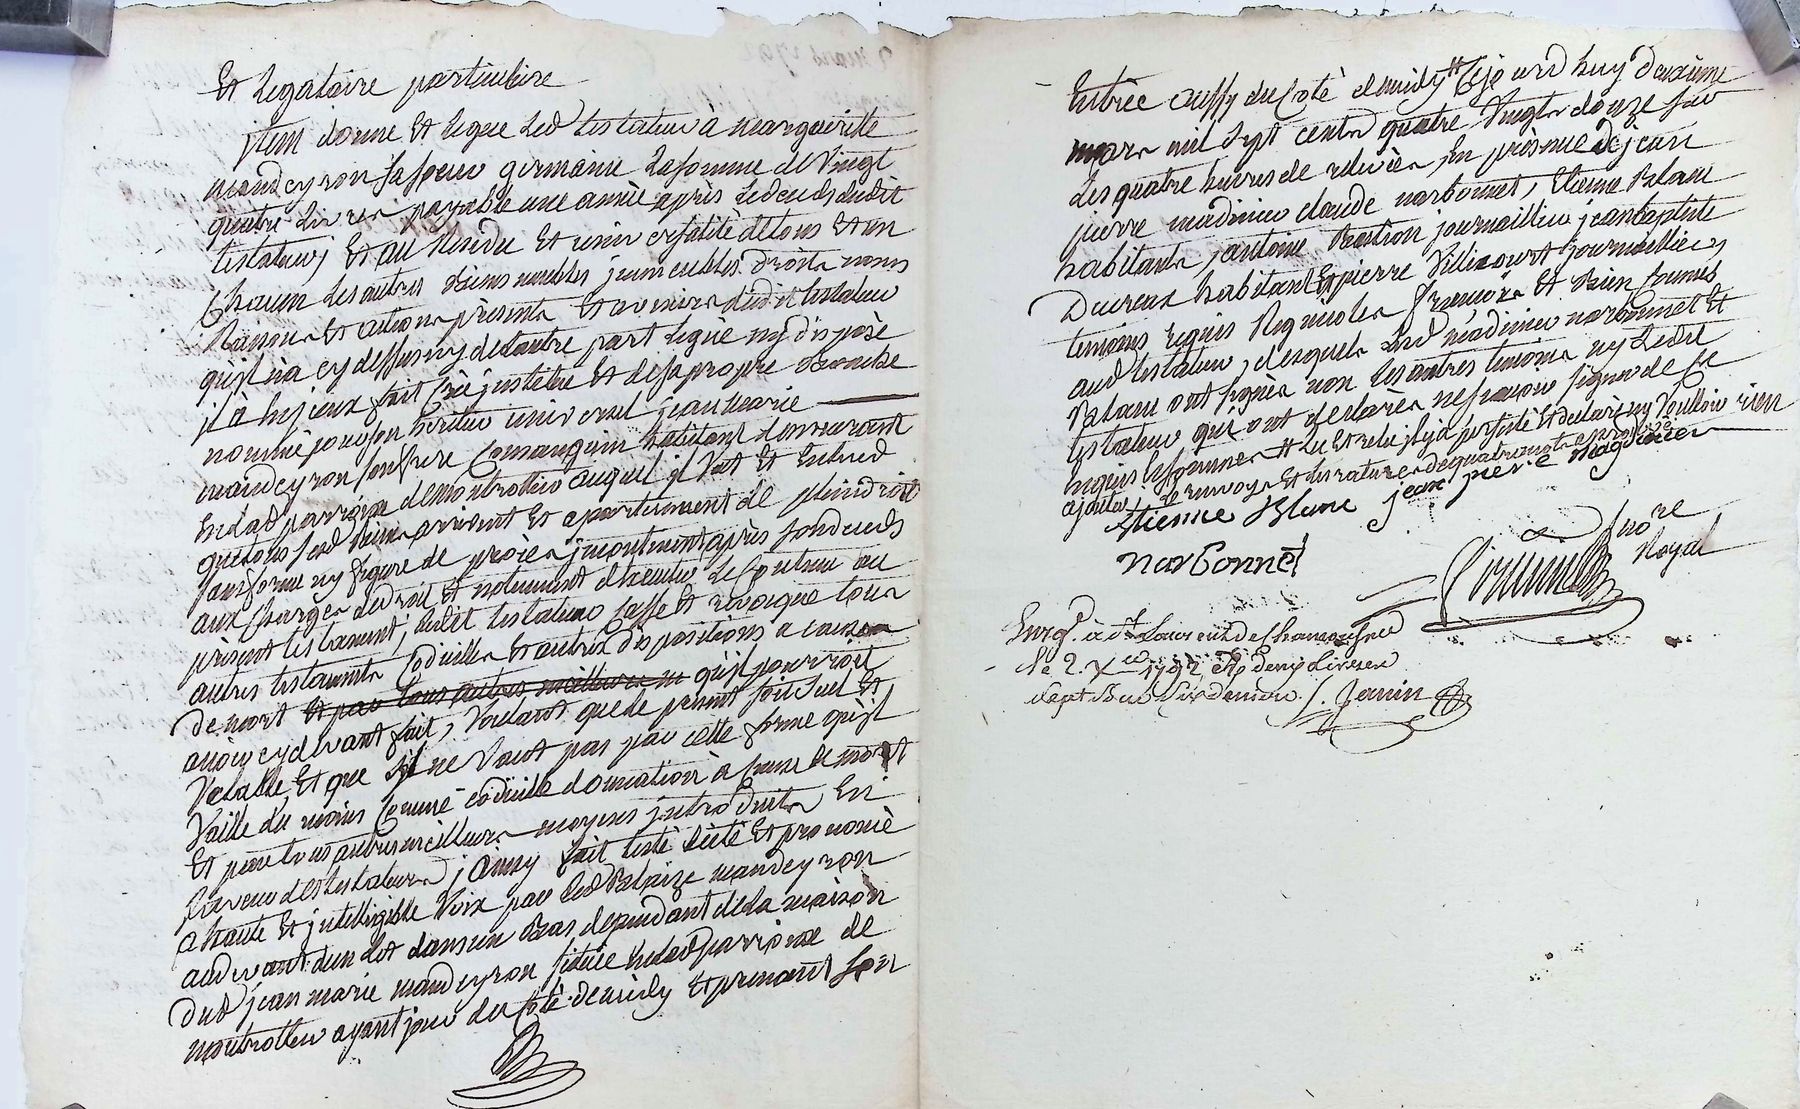 Et Legataire particuliere
jtem donne Et Legue Led testateur à margueritte
mandeyron sa soeur germaine La somme de Vingt
quatre Livres payable une année après Le deces dudit
testateur, Et au Residu Et universalité de tous Et un
Chacun Les autres Biens meubles jmmeubles droits noms
Raisons Et actions présents Et avenirs dudit testateur
qu'jl n'a cy dessus ny de L'autre part Legué ny disposé
jl à hérité fait créé justitué Et de sa propre Bouche
nommé pour son héritier universel jean marie
mandeyron son frere Consanguin habitant demeurant
En Lad parroisse de montrottier auquel jl Veut Et Entend
que tous sesd Biens arrivent Et apartiennent de pleindroit
sans forme ny figure de procès jncontinent après son deceds
aux Charges de droit Et notamment d'Executer Le Contenu au
présent testament, Ledit testateur Casse Et revoque tous
autres testaments Codicilles Et autres dispositions a cause
de mort et par tous autres meilleurs m qu'jl pourroit
avoir cydevant fait, Voulant que le present soit seul Et
Valable Et que s'jl ne Vaut pas par cette forme qu'jl
Vaille du moins Comme codicille donnation à Cause de mort
Et par tous autres meilleurs moyens jntroduits En
faveur des testateurs, jainsy fait testé dicté Et prononcé
a haute Et jntelligible Voix par Led Blaize mandeyron
audevant d'un Lit dans un Bas dependant de La maison
dud jean marie mandeyron située En Lad parroisse de
montrottier ayant jour du Coté de midy Et prenant son
Entrée aussy du Coté de midy # Cejourd'huy deuxieme
mars mil sept cents quatre Vingts douze sur
Les quatre heures de relevée En présence de jean
pierre madinier claude narbonnet, Etienne Blanc
habitants, antoine Bastion journaillier jean baptiste
Ducreux habitant Et pierre Villecourt journaillier,
temoins requis Regnicoles françois Et Bien Connus
aud testateur, desquels Led madinier narbonnet Et
Blanc ont signés non Les autres temoins ny Ledit
testateur qui ont declarés ne savoir signer de Ce
requis Et sommés # Lu Et relu jl y a persisté Et declaré ny Voulloir rien
ajouter Le renvoy Et Les ratures de quatre mots approuvé
Etienne Blanc jean pierre Madinier
narbonnet
nore
Royal
Enrg. à St Laurent de Chamousset
Le 2. Xbre 1792
sept Bas Sixdeniers. /. Janin